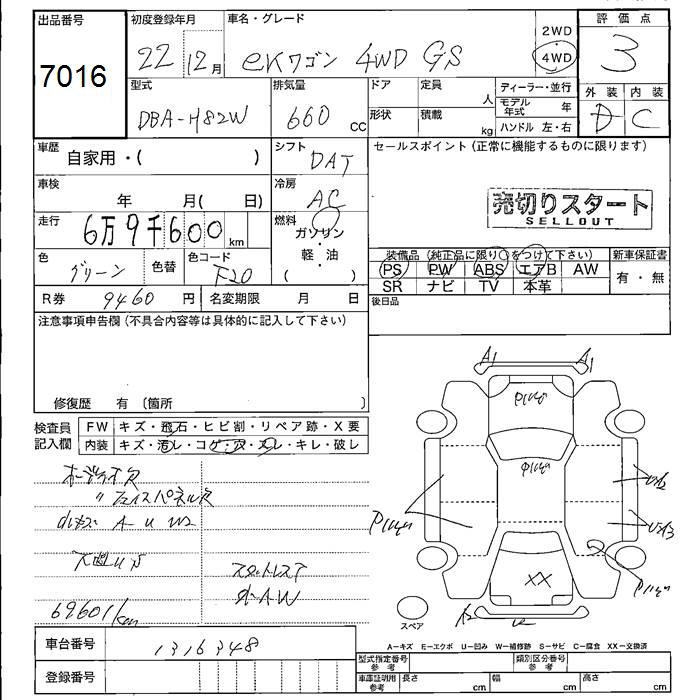 出品番号
7016
初度登録年月
22 12月
車名・グレード
eKワゴン 4WD GS
2WD
4WD
評価点
3
型式
DBA-H82W
排気量
660 cc
ドア
形状
定員
人
積載
kg
ディーラー・並行
モデル年式 年
ハンドル 左・右
外装 内装
D C
車歴
自家用・( )
シフト
DAT
セールスポイント(正常に機能するものに限ります)
車検
年 月( 日)
冷房
AC
売切りスタート
SELLOUT
走行
6万9千600 km
燃料
ガソリン
・
軽・油
( )
色
グリーン
色替
色コード
F20
装備品(純正品に限り○をつけて下さい)
PS PW ABS エアB AW
SR ナビ TV 本革
新車保証書
有・無
R券 9460 円
名変期限 月 日
後日品
注意事項申告欄(不具合内容等は具体的に記入して下さい)
修復歴 有(箇所 )
検査員
記入欄
FW キズ・飛石・ヒビ割・リペア跡・X要
内装 キズ・汚レ・コゲ・穴・スレ・キレ・破レ
オーディオ欠
〃 フェイスパネル欠
A U W2
69601km
スタットレスT
社外AW
A1 A1
XX
A2 U
スペア
A-キズ E-エクボ U-凹み W-補修跡 S-サビ C-腐食 XX-交換済
車台番号
1316348
登録番号
型式指定番号
参考
類別区分番号
参考
車庫証明用
参考
長さ cm
幅 cm
高さ cm